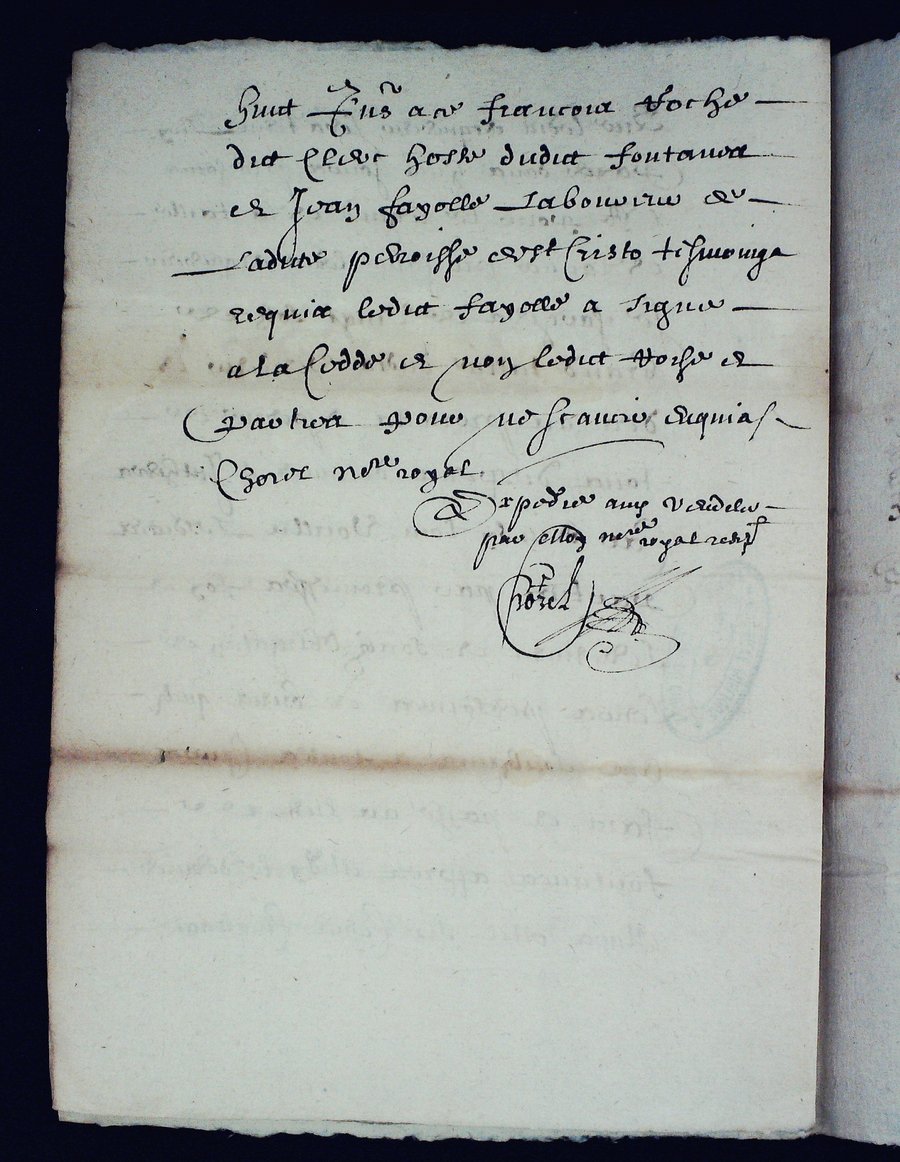 huict Pnts a ce francois Roche
dict Clerc hoste dudict fontanes
et Jean fayolle Laboureur de
Ladicte perroisse de st Cristo tesmoings
requis ledict fayolle a signe
a la Cedde et non ledict Roche et
parties pour ne scavoir enquis
Chorel nore royal
Expedie aux vendeurs
par moy nore royal
Chorel